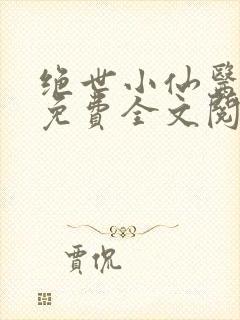 绝世小仙医
免费全文阅
贾侃